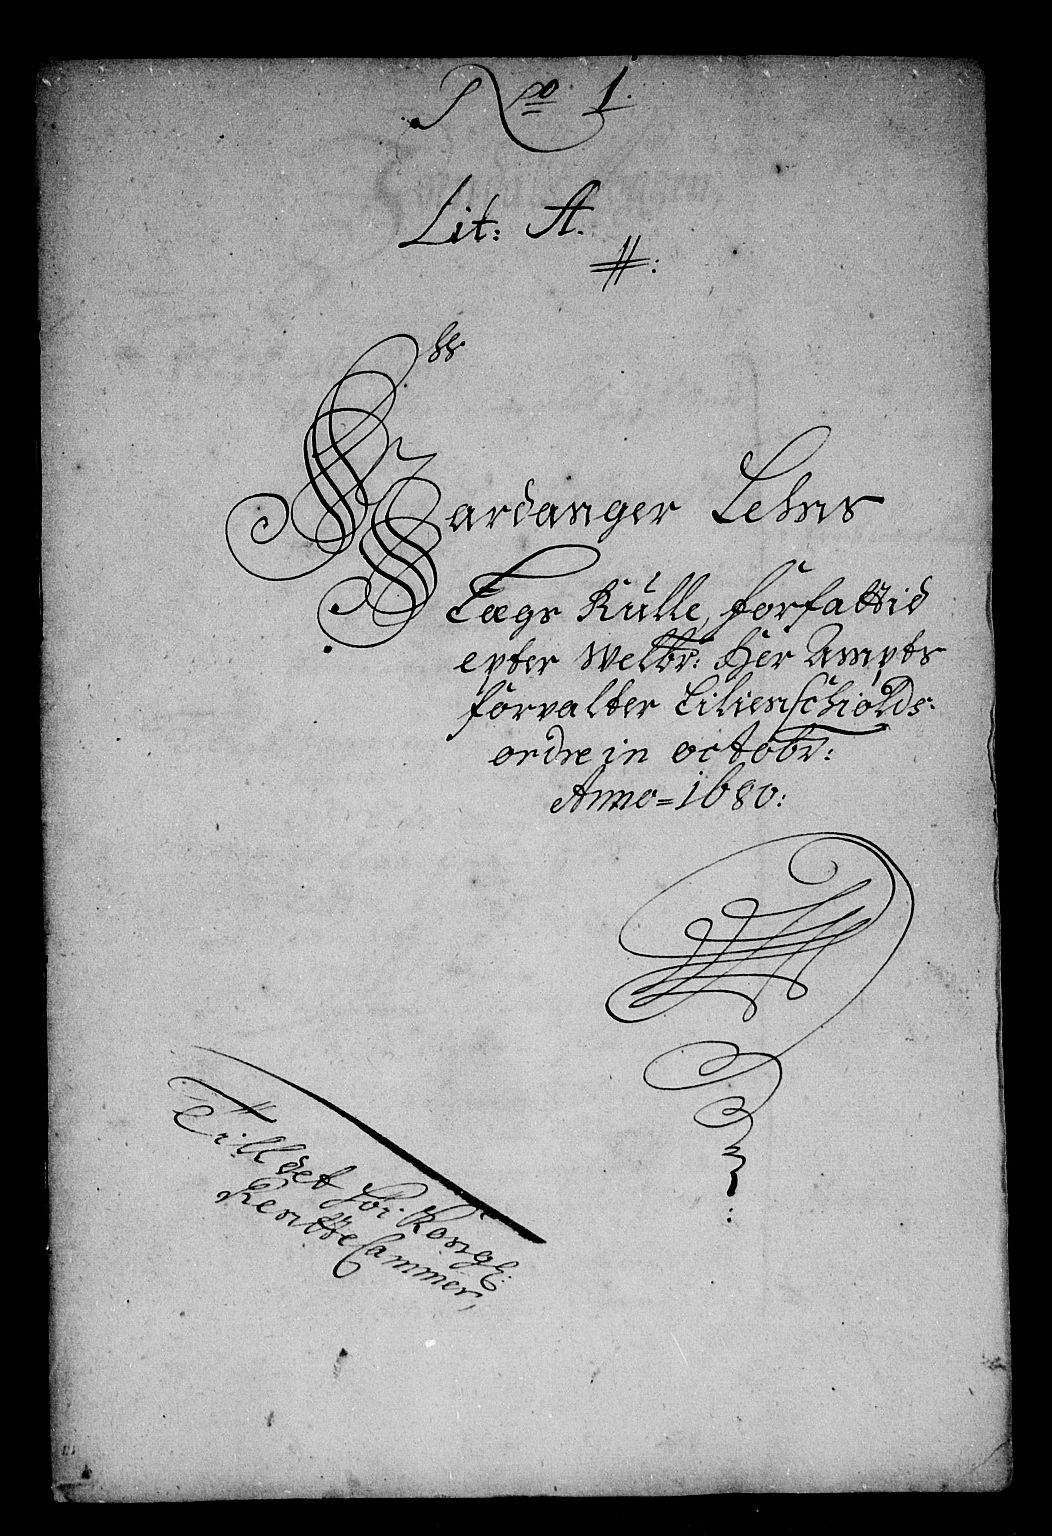 No 1.
Lit: A.
Hardanger Lehns
Lægs Rulle, forfattid
epter Welbr: Her Ampts
forvalter Lilienschiolds
ordre in octobr:
Anno = 1680:
Till det höi: Kongl:
Rentte Cammer,